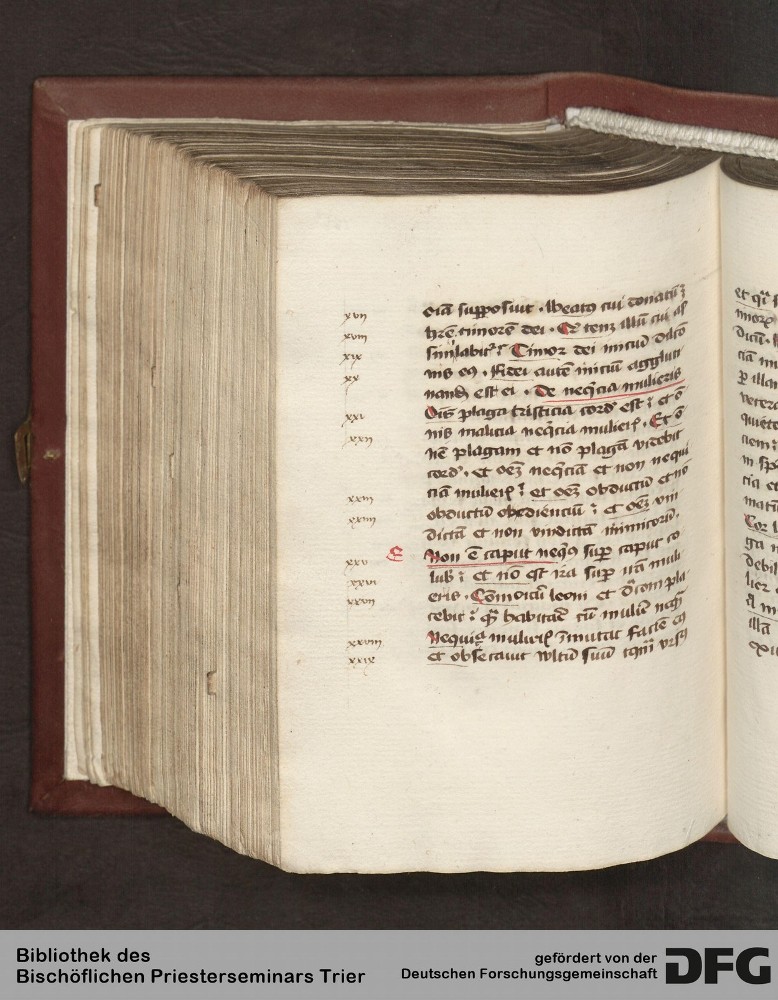 xvii
xviii
xix
xx
xxi
xxii
xxiii
xxiiii
xxv
xxvi
xxvii
xxviii
xxix
E
oīa supposuit . Beatꝰ cui donatū ē
hr̄e timorē dei . Et tenꝫ illū cui aſ
Timor dei iniciū
nis eꝰ . Fidei autē iniciū agglūti
nandū est ei . De neq̄cia mulieris
Oīs plaga tristicia cord est : et ō
nis malicia neq̄cia mulier . Et ō
nē plagam et nō plagā videbit
cord . et oēꝫ neq̄ciā et non nequi
ciā mulier : et oēꝫ obductū et nō
obductū obedienciū : et oēꝫ vin
dictā et non vindictā inimicorū .
Non ē caput neq̄ꝰ sup caput co
lub : et nō est ira sup irā muli
eris . Cōmorari leoni et dr̄coni pla
cebit : q̄ habitare cū muliē neq̄
Nequicia mulier īmutat faciē eꝰ
et obsecauit vultū suū tq̄ vrsꝰ
Cor
debil
illā
Bibliothek des
Bischöflichen Priesterseminars Trier
gefördert von der
Deutschen Forschungsgemeinschaft
DFG